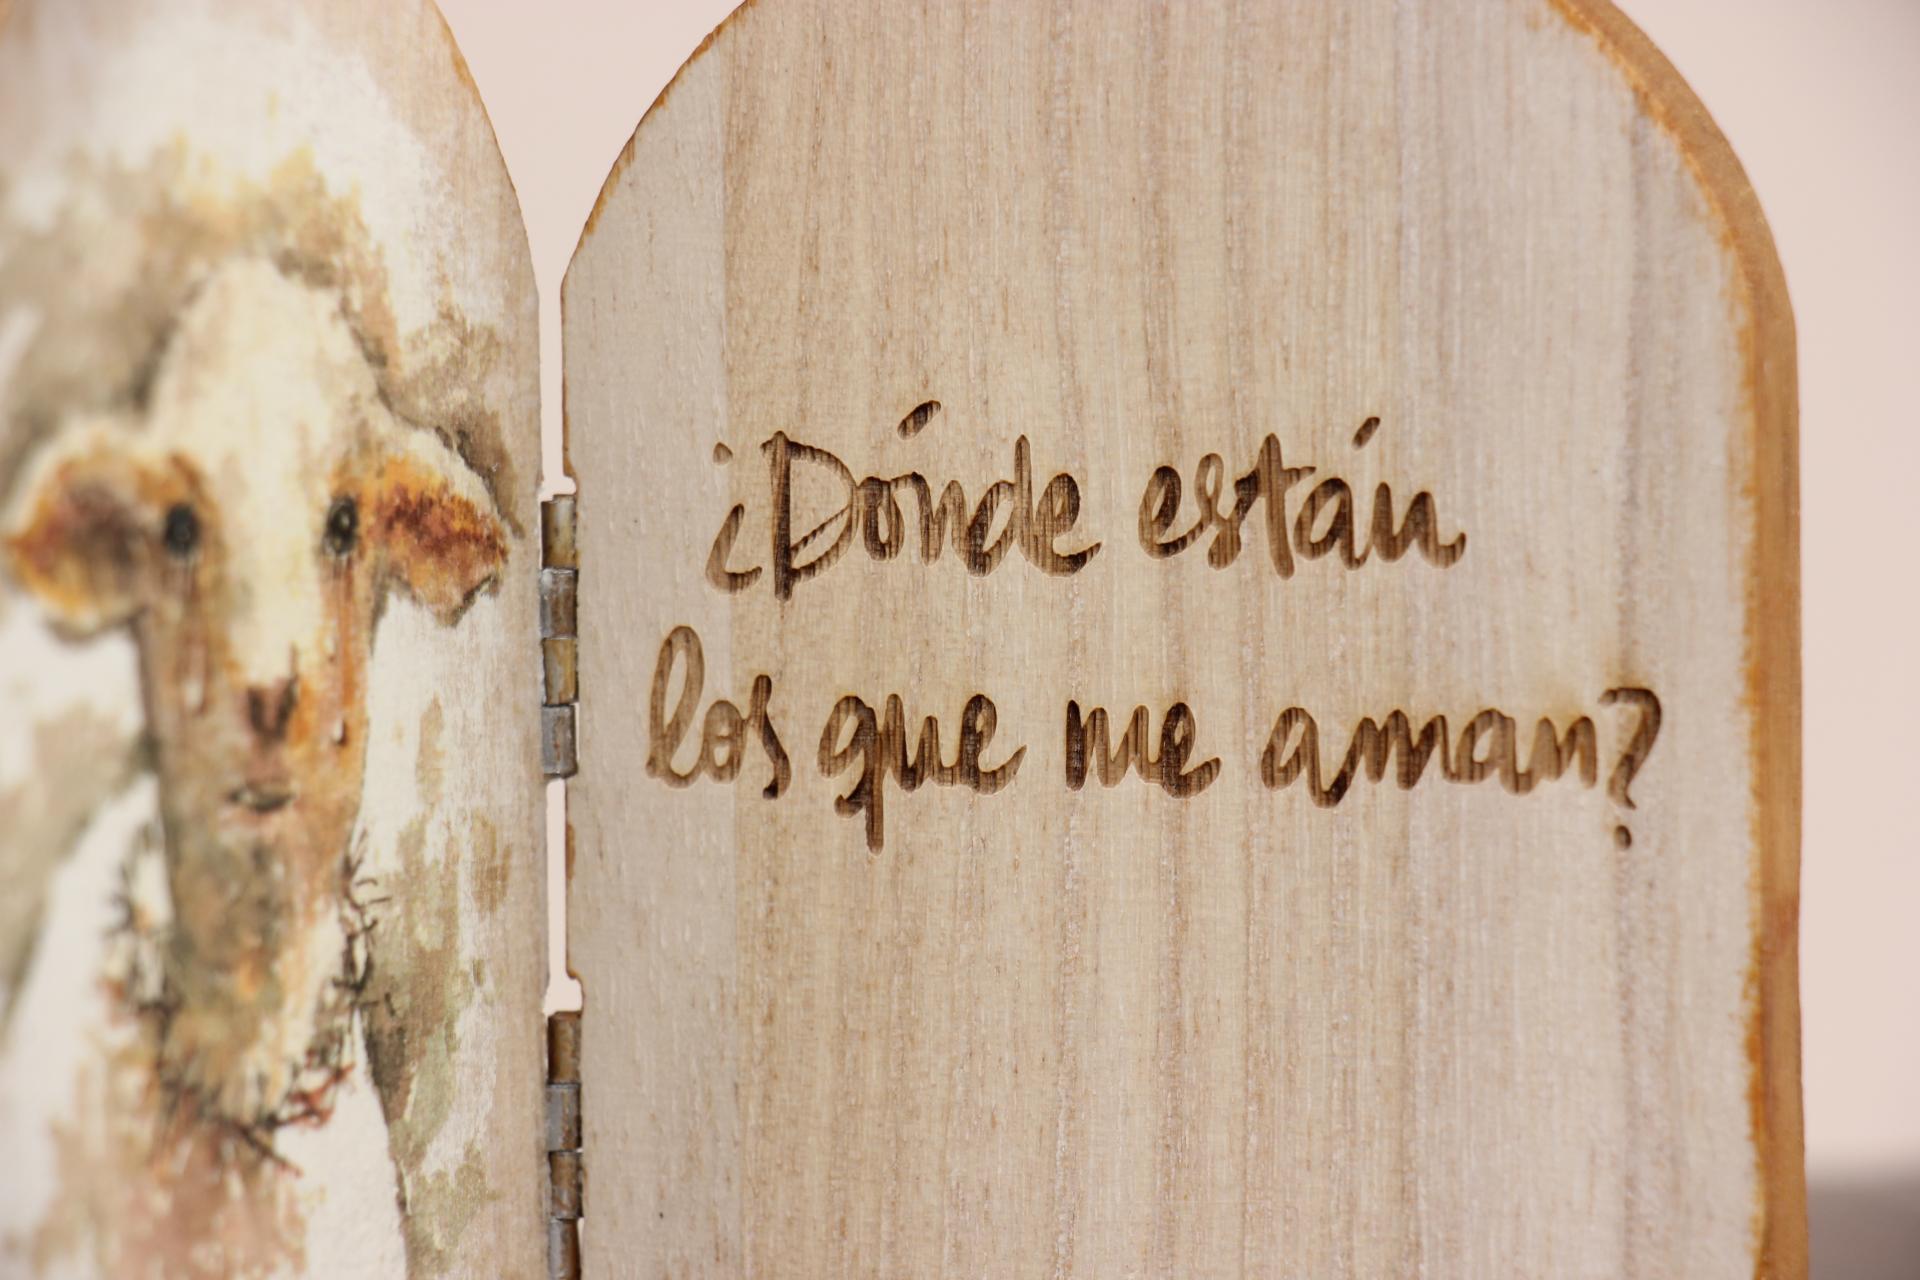 ¿Dónde están
los que me aman?